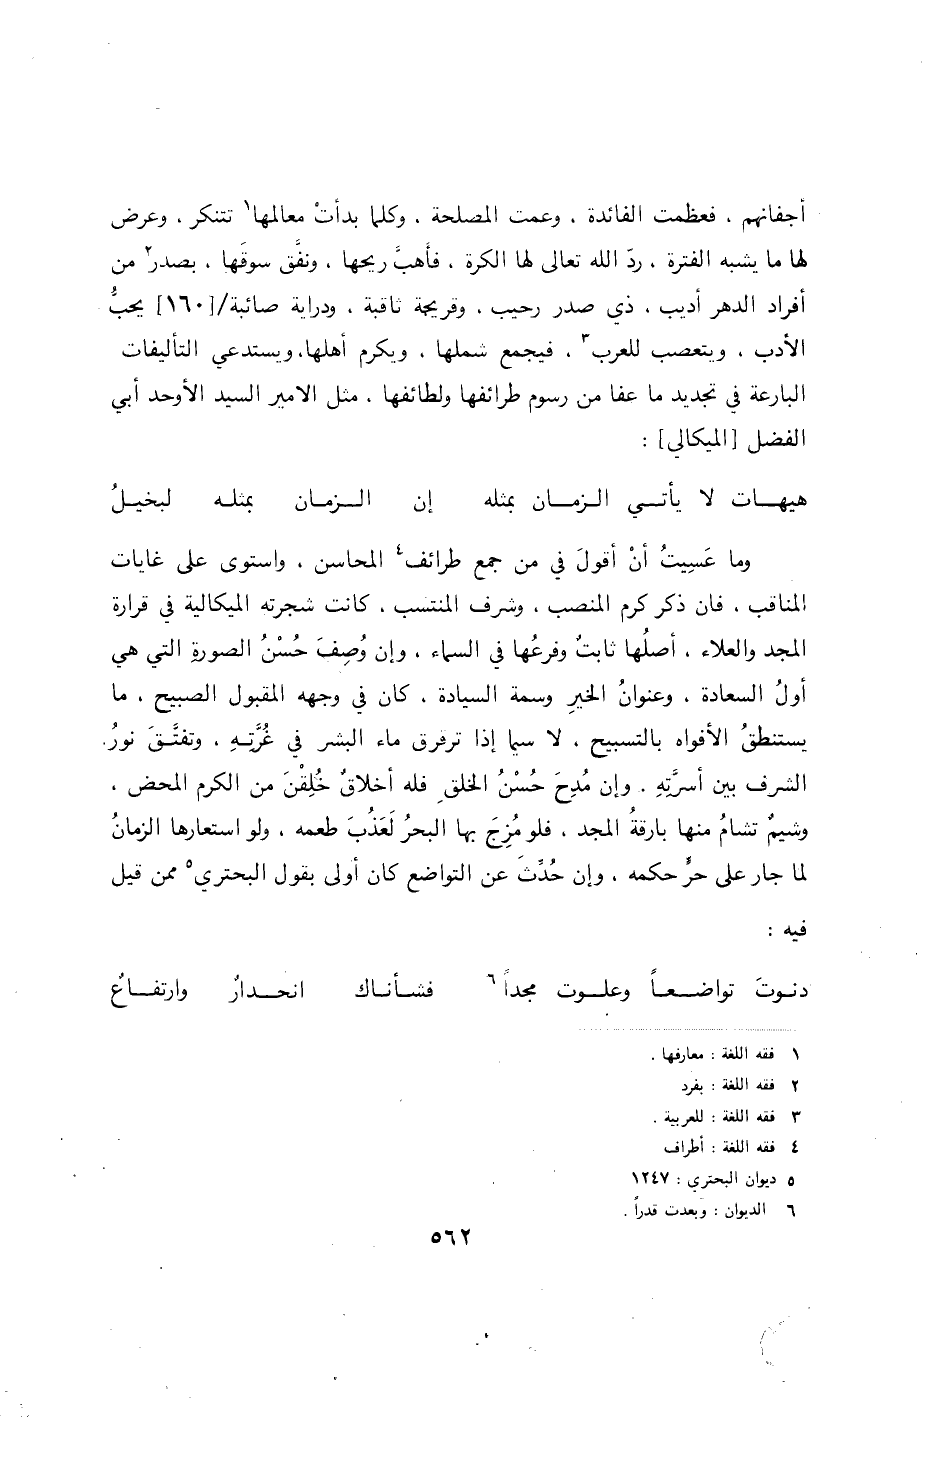 أجفانهم ، فعظمت الفائدة ، وعمت المصلحة ، وكلما بدأتْ معالمها١ تتنكر ، وعرض
لها ما يشبه الفترة ، ردّ الله تعالى لها الكرة ، فأهبَّ ريحها ، ونفَّق سوقَها ، بصدر٢ من
أفراد الدهر أديب ، ذي صدر رحيب ، وقريحة ثاقبة ، ودراية صائبة/[١٦٠] يحبُّ
الأدب ، ويتعصب للعرب٣ ، فيجمع شملها ، ويكرم أهلها، ويستدعي التأليفات
البارعة في تجديد ما عفا من رسوم طرائفها ولطائفها ، مثل الامير السيد الأوحد أبي
الفضل [الميكالي] :
هيهات لا يأتي الزمان بمثله إن الزمان بمثله لبخيلُ
وما عَسِيتُ أنْ أقولَ في من جمع طرائف٤ المحاسن ، واستوى على غايات
المناقب ، فان ذكر كرم المنصب ، وشرف المنتسب ، كانت شجرته الميكالية في قرارة
المجد والعلاء ، أصلُها ثابتٌ وفرعُها في السماء ، وإن وُصِفَ حُسْنُ الصورةِ التي هي
أولُ السعادة ، وعنوانُ الخيرِ وسمة السيادة ، كان في وجهه المقبول الصبيح ، ما
يستنطقُ الأفواه بالتسبيح ، لا سيما إذا ترقرق ماء البشر في غُرَّتِهِ ، وتفتَّقَ نورُ
الشرف بين أسرَّتِهِ . وإن مُدِحَ حُسْنُ الخلقِ فله أخلاقٌ خُلِقْنَ من الكرم المحض ،
وشيمٌ تشامُ منها بارقةُ المجد ، فلو مُزِجَ بها البحرُ لَعَذُبَ طعمه ، ولو استعارها الزمانُ
لما جار على حرٍّ حكمه ، وإن حُدِّثَ عن التواضع كان أولى بقول البحتري٥ ممن قيل
فيه :
دنوتَ تواضعاً وعلوت مجداً٦ فشأناك انحدارٌ وارتفاعُ
١ فقه اللغة : معارفها .
٢ فقه اللغة : بفرد
٣ فقه اللغة : للعربية .
٤ فقه اللغة : أطراف
٥ ديوان البحتري : ١٢٤٧
٦ الديوان : وبعدت قدراً .
٥٦٢